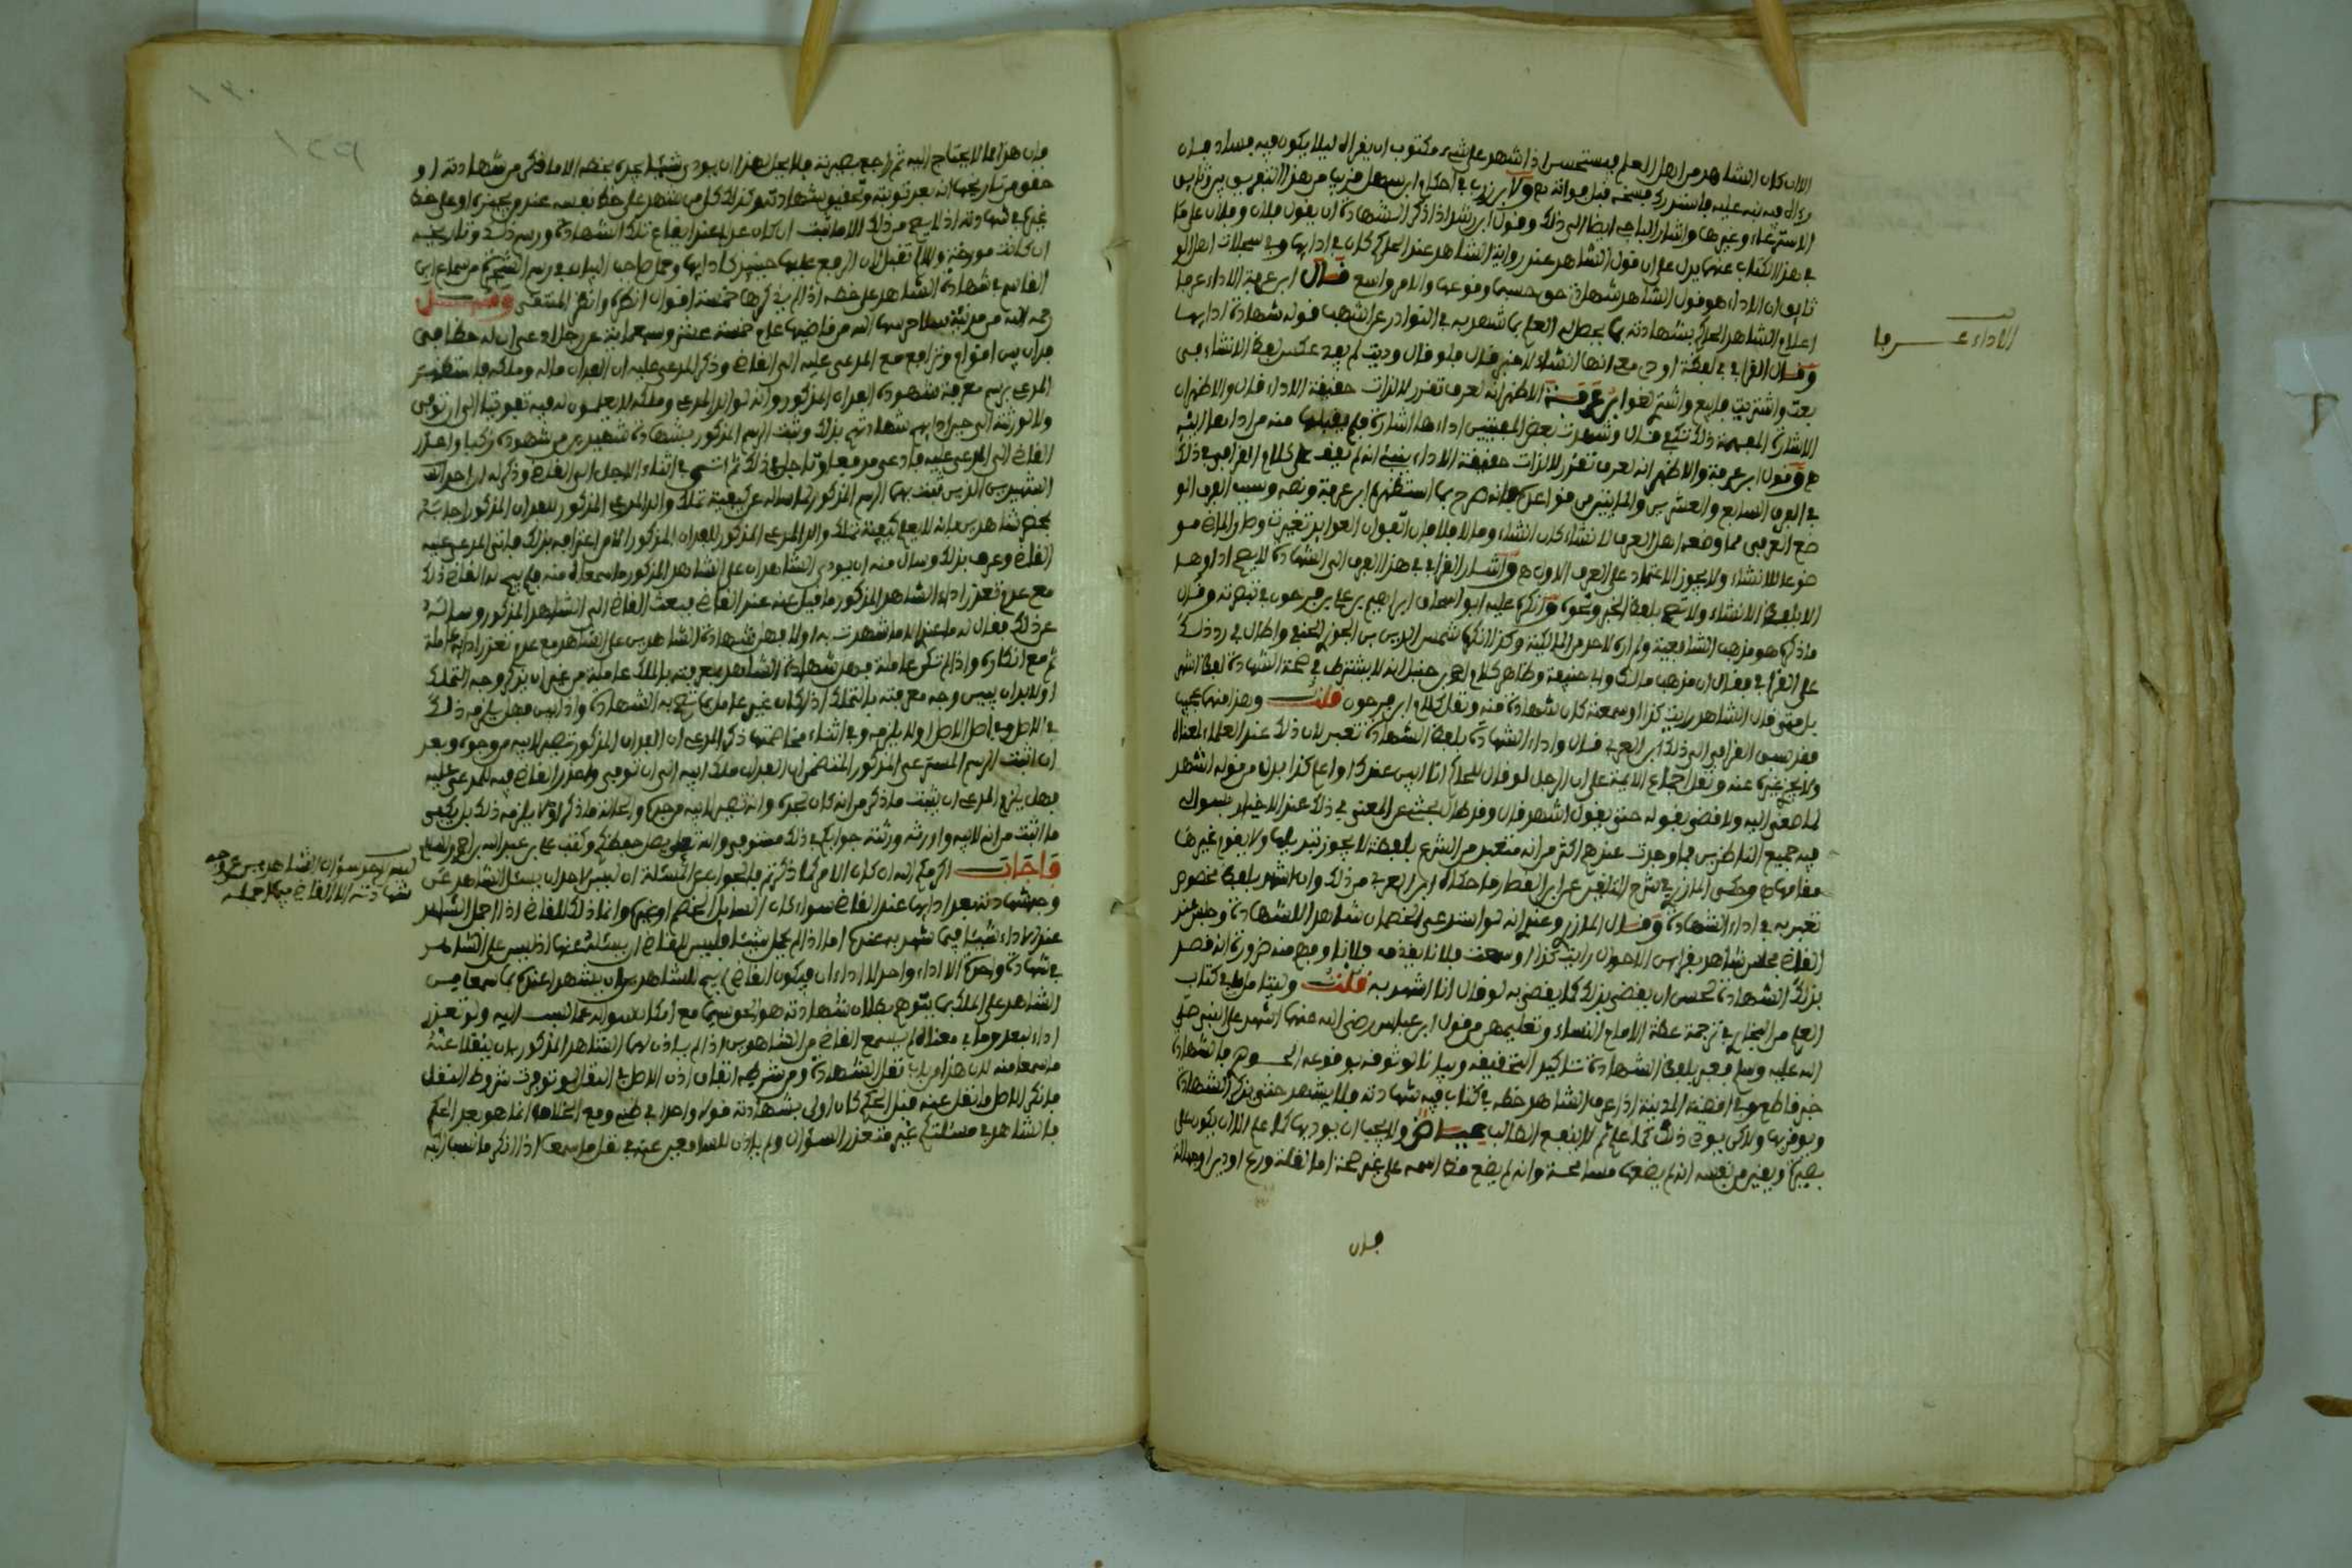 الا ان كان الشاهد من اهل العلم فيستحسن اذا شهد على شيء مكتوب ان يقرأه ليلا يكون فيه فساد فان
الاسترعاء وغيرها واشار الباجي ايضا الى ذلك وقول ابن رشد اذا ذكر الشهادة ان يقول فلان وفلان على
في هذا الكتاب عندما يدل على ان قول الشاهد عند رواية الشاهد عند الحاكم كان في ادائها وفي سجلات
ان الاداء هو قول الشاهد شهادة حق حسبما وقوعها والامر واسع قال ابن عرفة الاداء عرفا
اعلام الشاهد الحاكم بشهادته بما يحصل له العلم بما شهد به في النوادر عن اشهب قوله شهادة ادائها
وقال القرافي في لفظة اودي مع انها انشاء لا خبر فلو قال وديت لم يفد عكس لفظ الانشاء في
بعت واشتريت فابيع واشتر لغو ابن عرفة الاظهر انه لعرف تقرر لا لذات حقيقة الاداء قال والاظهر ان
الاشارة المفهمة ذلك تكفي قال وشهدت بعض المفتيين اداءها اشارة فلم يقبلها منه
وقول ابن عرفة والاظهر انه لعرف تقرر لا لذات حقيقة الاداء ينبئ انه لم يقف على كلام القرافي في ذلك
في الفرق السابع والعشرين والمايتين من قواعده فانه صرح بما استظهره ابن عرفة ونصه وسبب الفرق الو
ضع العرفي مما وضعه اهل العرف للانشاء كان انشاء وما لا فلا فان اتفق ان العوايد تغيرت وصار الماضي مو
ضوعا للانشاء ولا يجوز الاعتماد على العرف الاول واشار القرافي في هذا الفرق الى الشهادة لا يصح اداؤها
الا بلفظ الانشاء ولا تصح بلفظ الخبر ونحوه وانكره عليه ابو اسحاق ابراهيم بن علي بن فرحون في تبصرته وقال
ما ذكره هو مذهب الشافعية ولم اره لاحد من المالكية وكذا انكره شمس الدين بن الجوزي الحنبلي واطال في رد ذلك
على القرافي فقال ان مذهب مالك وابي حنيفة وظاهر كلام احمد بن حنبل انه لا يشترط في صحة الشهادة لفظ اشهد
بل متى قال الشاهد رايت كذا او سمعته كان شهادة منه ونقل كلام ابن فرحون قلت وهذا منهما عجب
فقد سبق القرافي الى ذلك ابن العربي قال واداء الشهادة بلفظ الشهادة تعبد لان ذلك عند العلماء لمعناه
ولا يجزي غيره عنه ونقل اجماع الايمة على ان الرجل لو قال للحاكم انا اليس عندك او اعلم كذا بدلا من قوله اشهد
لما صغى اليه ولا قضى بقوله حتى يقول اشهد قال وقد طال بحثي عن المعنى في ذلك عند الاخيار بسوالي
فيه جميع الناظرين فما وجدت عندهم اكثر من انه متعبد من الشرع بلفظة لا يجوز تبديلها ولا يقوم غيرها
مقامها وحكى المازري في شرح التلقين عن ابن القصار ما حكاه ابن العربي من ذلك وان اشهد بلفظ مخصوص
تعبد به في اداء الشهادة وقال المازري وعندي انه لو استدعى الخصمان شاهدا للشهادة وجلس عند
القاضي مجلس شاهد بقراين الاحوال رايت كذا او سمعت فلانا يقذف فلانا وفهم منه ضرورة انه قصد
بذلك الشهادة لحسن ان يقضي بذلك كما يقضي به لو قال انا اشهد به قلت
العلم من البخاري في ترجمة عظة الامام النساء وتعليمهن من قول ابن عباس رضي الله عنهما اشهد على النبي صلى
الله عليه وسلم فعبر بلفظ الشهادة تاكيدا لتحقيقه وبيانا لوثوقه بوقوعه
خبر قاطع وفي اقضية المدينة اذا عرف الشاهد خطه في كتاب فيه شهادته فلا يشهد حتى يذكر الشهادة
ويوقن بها ولاكن يؤدي ذلك كما علم ثم لا ينفع الطالب عياض ولا يجب ان يوديها كما علم الا ان يكون على
بصيرة ويقين من نفسه انه لم يضعها مسامحة وانه لم يضع قط اسمه على غير صحة
فان
الاداء عرفا
فان هذا مما لا يحتاج اليه ثم راجع بصيرته فلا يحل لهذا ان يودي شيئا يجده بخطه الا ما ذكر من شهادته او
حقق من تاريخها انه بعد توبته وتحقيق شهادته وكذلك كل من شهد على خط نفسه عند من يجيزه او على خط
غيره في شهادته اذ لا يصح من ذلك الا ما ثبت ان كان عدلا عند ايقاع تلك الشهادة ورسمه ذلك وتاريخه
ان كانت مورخة والا لم تقبل لان الرفع عليها حينئذ كادائها وحمل صاحب البيان في رسم الشجرة من سماع ابن
القاسم في شهادة الشاهد على خطه اذا لم يذكرها خمسة اقوال انظره وانظر المنتقى وقد سئل
رحمه الله من مدينة سلا حرسها الله من قاضيها عام خمسة عشر وسبعماية عن رجل ادعى ان له حظا في
فدان بين اقوام وترافع مع المدعى عليه الى القاضي وذكر المدعى عليه ان الفدان ماله وملكه فاستظهر
المدعي برسم معرفة شهوده الفدان المذكور وانه لوالد المدعي وملكه لا يعلمون له فيه تفويتا الى ان توفي
ولا لورثته الى حين ادائهم شهادتهم بذلك وثبت الرسم المذكور بشهادة شهيدين من شهوده زكيا واعذر
القاضي الى المدعى عليه فادعى مدفعا وتاجل في ذلك ثم اتى في اثناء الاجل الى القاضي وذكر له ان احد
الشهيدين الذين ثبت بهما الرسم المذكور لما ساله عن كيفية تملك والد المدعي المذكور للفدان المذكور اجابه
بمحضر شاهدين بانه لا يعلم كيفية تملك والد المدعي المذكور للفدان المذكور
القاضي وعرف بذلك وسال منه ان يودي الشاهدان على الشاهد المذكور ما سمعاه منه فلم يبح له القاضي ذلك
مع عدم تعذر اداء الشاهد المذكور ما قيل عنه عند القاضي فبعث القاضي الى الشاهد المذكور وساله
عن ذلك فقال له ما عندي الا ما شهدت به اولا فهل شهادة الشاهدين على الشاهد مع عدم تعذر ادائه عاملة
ثم مع انكاره واذا لم تكن عاملة فهل شهادة الشاهد بمعرفته بالملك عاملة من غير ان يذكر وجه التملك
او لا بد ان يبين وجه معرفته بالتملك اذا كان غير عالم بما تصح به الشهادة واذا بين فهل يلزمه ذلك
في الاصل وفي اصل الاصل او لا يلزمه وفي اثناء مخاصمتهما ذكر المدعي ان الفدان المذكور تصير لابيه من جده وبعد
ان اثبت الرسم المسترعى المذكور المتضمن ان الفدان ملك ابيه الى ان توفي واعذر القاضي فيه للمدعى عليه
فهل يلزم المدعي ان يثبت ما ذكر من انه كان لجده وانه تصير لابيه من جده والحال ما ذكر او لا يلزمه ذلك بل يكفي
ما اثبت من انه لابيه واورثه ورثته جوابكم في ذلك مستوفى والله تعلى يصل حفظكم وكتب علي بن عبد الله
فاجاب اكرمكم الله ان كان الامر كما ذكرتم فالجواب عن المسئلة ان ليس لاحد ان يسئل الشاهد عن
وجه شهادته بعد ادائها عند القاضي سواء كان السايل الخصم او غيره وانما ذلك للقاضي اذا اجمل الشاهد
عند الاداء شيئا فيما شهد به عنده اما اذا لم يجمل شيئا فليس للقاضي ان يسئله عنها اذ ليس على الشاهد
في شهادة واحدة الا اداء واحد
الشاهد على الملك بما يتوهم بطلان شهادته هو لغو سيما مع امكان سواله عما نسب اليه ولو تعذر
اداء لبعد وما في معناه لم يسمع القاضي من الشاهدين اذا لم ياذن لهما الشاهد المذكور بان ينقلا عنه
ما سمعا منه لان هذا من باب نقل الشهادة ومن شرطه اتفاق اذن الاصل في النقل ولو توفرت شروط النقل
فانكر الاصل ما نقل عنه قبل الحكم كان اولى بشهادته قولا واحدا في ظني وقع الخلاف انما هو بعد الحكم
فالشاهد في مسئلتكم غير متعذر السؤال ولم ياذن للسامعين عنه في نقل ما سمعا اذا انكر ما نسب اليه
ليس لاحد سؤال الشاهدين عن وجه
شهادته الا القاضي فيما اجمله